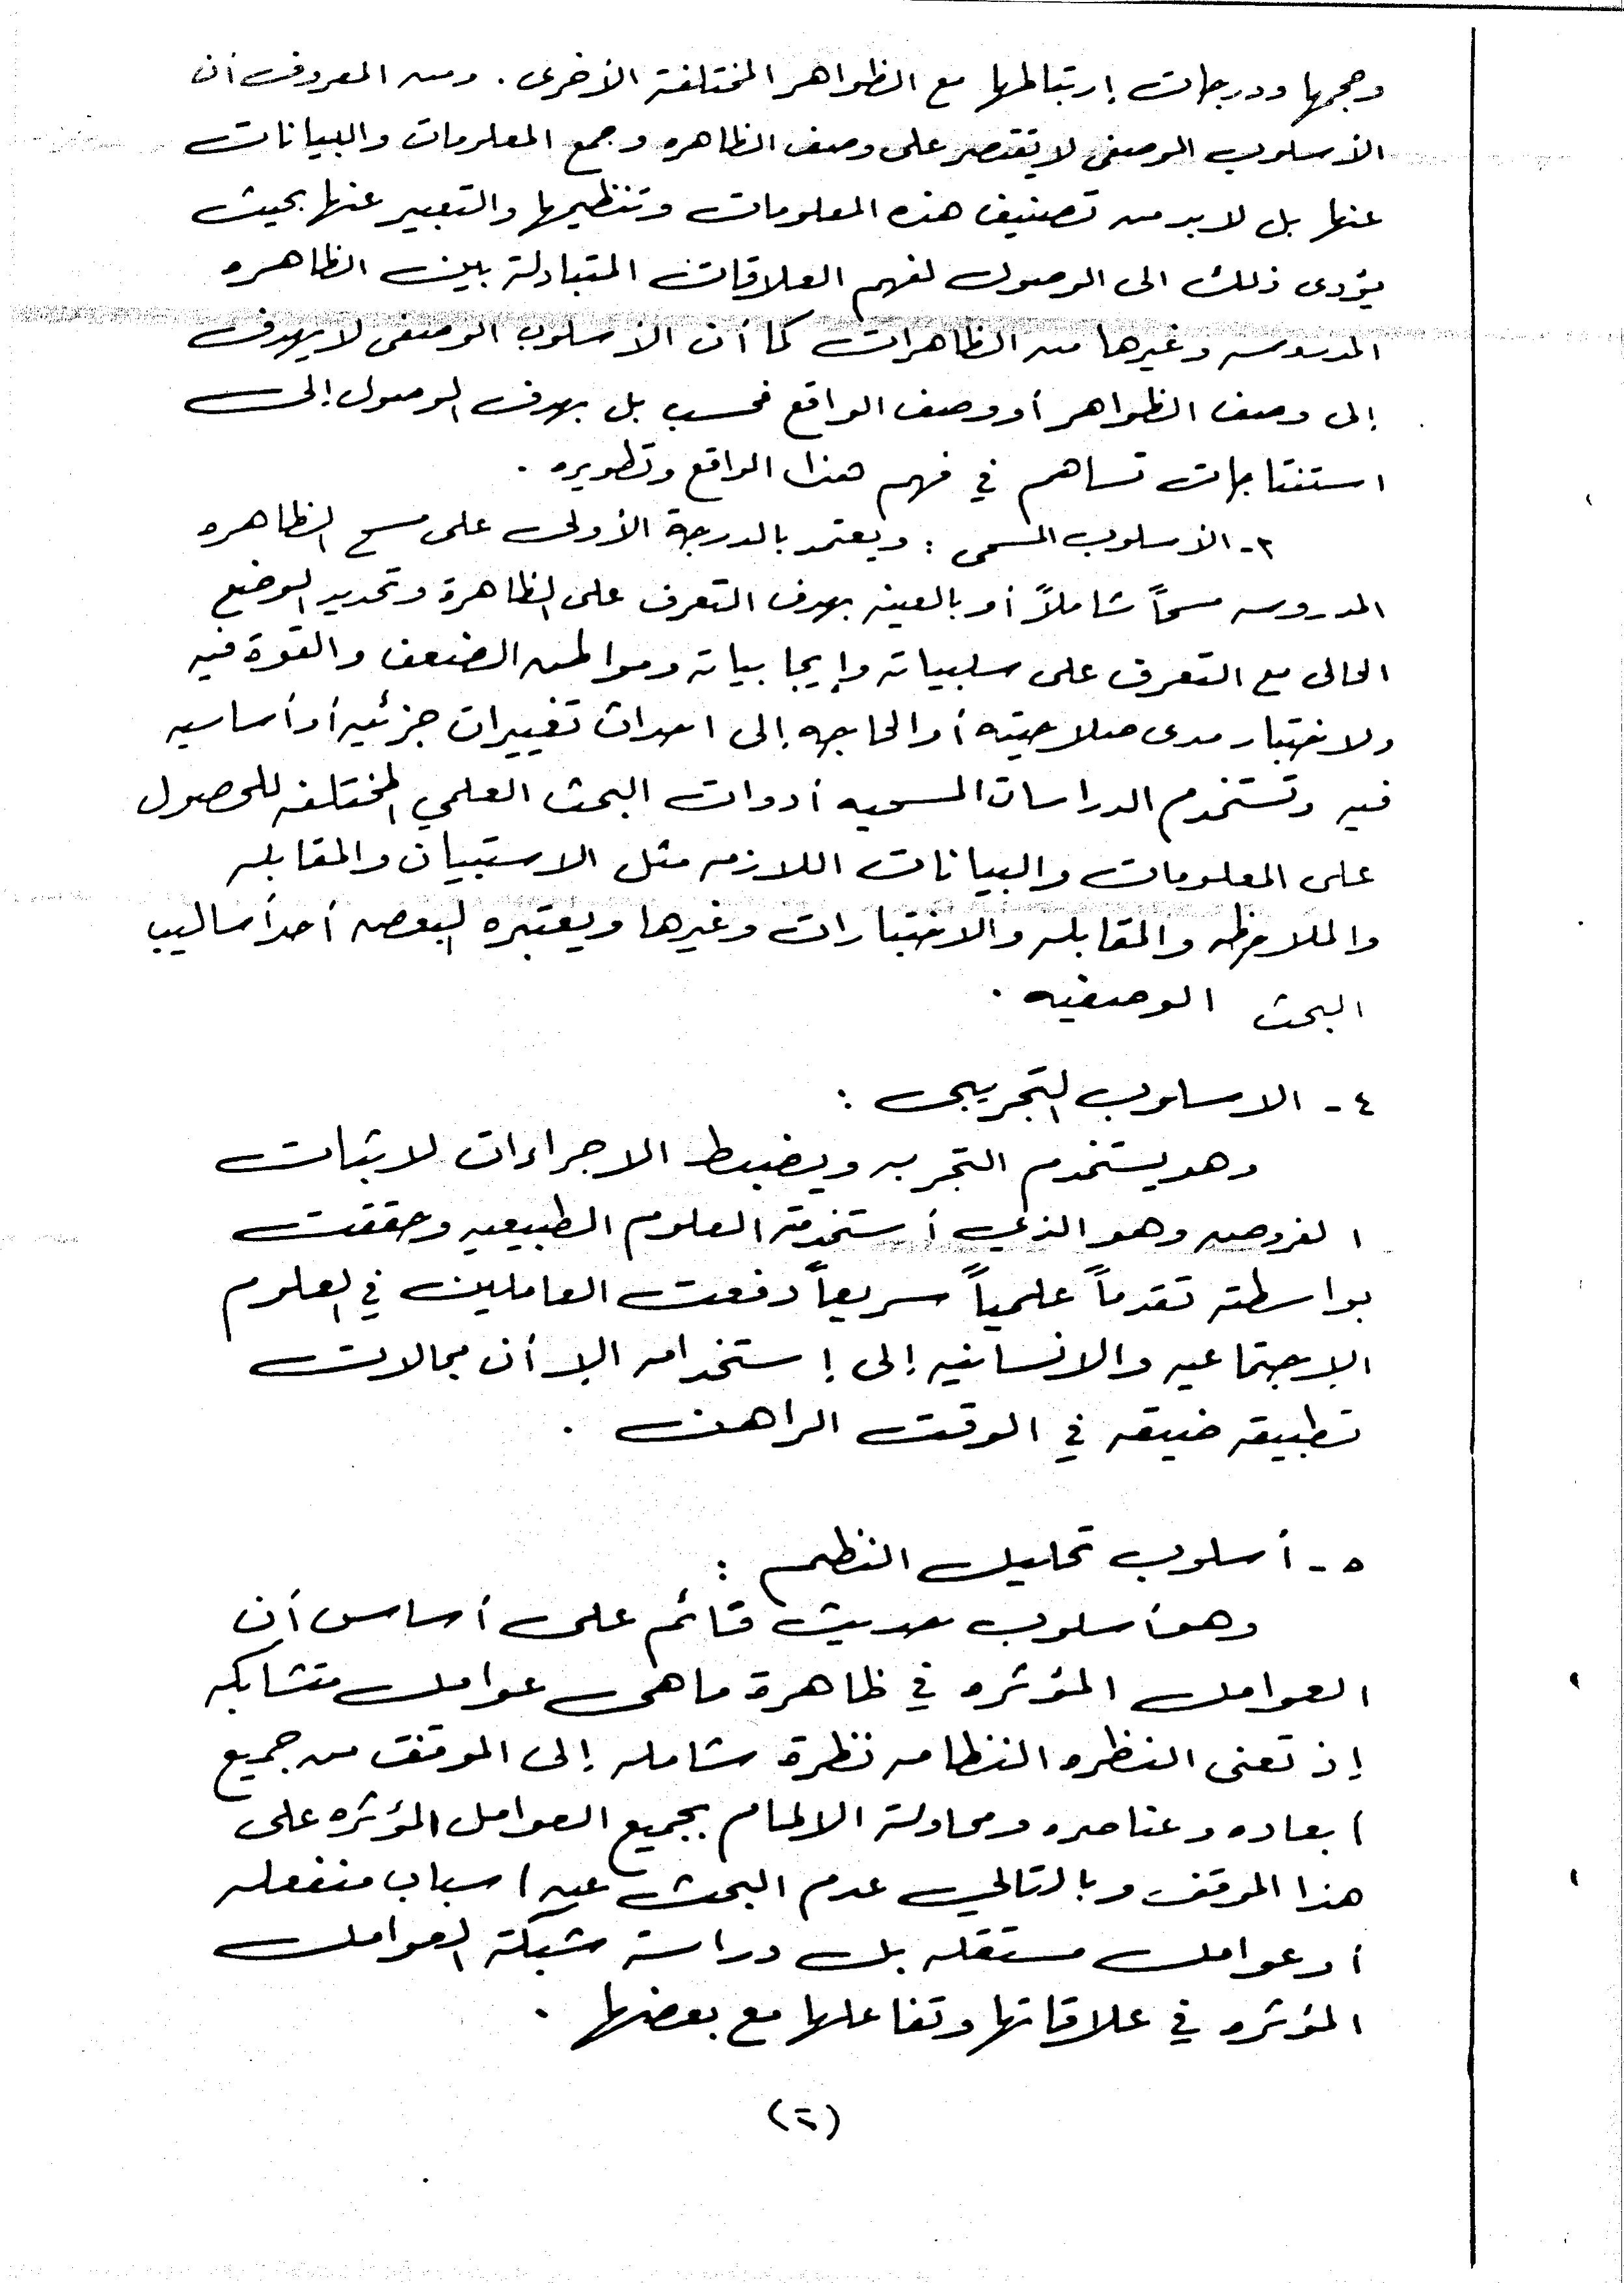 وحجمها ودرجات إرتباطها مع الظواهر المختلفة الأخرى . ومن المعروف أن
الأسلوب الوصفى لا يقتصر على وصف الظاهره وجمع المعلومات والبيانات
عنها بل لابد من تصنيف هذه المعلومات وتنظيمها والتعبير عنها بحيث
يؤدى ذلك الى الوصول لفهم العلاقات المتبادلة بين الظاهره
المدروسه وغيرها من الظاهرات كما أن الأسلوب الوصفى لا يهدف
إلى وصف الظواهر أو وصف الواقع فحسب بل يهدف الوصول إلى
استنتاجات تساهم في فهم هذا الواقع وتطويره .
٣- الأسلوب المسحى : ويعتمد بالدرجة الأولى على مسح الظاهره
المدروسه مسحاً شاملاً أو بالعينه بهدف التعرف على الظاهرة وتحديد الوضع
الحالى مع التعرف على سلبياته وإيجابياته ومواطن الضعف والقوة فيه
ولاختبار مدى صلاحيته أو الحاجه إلى احداث تغييرات جزئيه أو أساسيه
فيه وتستخدم الدراسات المسحيه أدوات البحث العلمي المختلفه للحصول
على المعلومات والبيانات اللازمه مثل الاستبيان والمقابله
والملاحظه والمقابله والاختبارات وغيرها ويعتبره البعض أحد أساليب
البحث الوصفيه .
٤ - الاسلوب التجريبى :
وهو يستخدم التجربه ويضبط الاجراءات لاثبات
الفروض وهو الذي أستخدمته العلوم الطبيعيه وحققت
بواسطته تقدماً علمياً سريعاً دفعت العاملين في العلوم
الإجتماعيه والانسانيه إلى إستخدامه إلا أن مجالات
تطبيقه ضيقه في الوقت الراهن .
٥ - أسلوب تحليل النظم :
وهو أسلوب حديث قائم على أساس أن
العوامل المؤثره في ظاهرة ما هى عوامل متشابكه
إذ تعنى النظره النظامه نظرة شامله إلى الموقف من جميع
ابعاده وعناصره ومحاولة الالمام بجميع العوامل المؤثره على
هذا الموقف وبالتالي عدم البحث عن اسباب منفصله
أو عوامل مستقله بل دراسة شبكة العوامل
المؤثره في علاقاتها وتفاعلها مع بعضها .